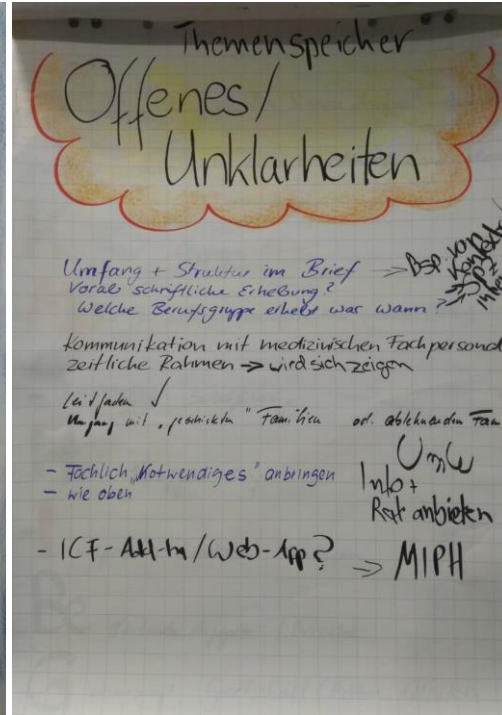 Themenspeicher
Offenes/
Unklarheiten
Umfang + Struktur im Brief → Bsp.
Vorab schriftliche Erhebung?
Welche Berufsgruppe erhebt was wann?
Kommunikation mit medizinischen Fachpersonal
zeitliche Rahmen → wird sich zeigen
Leitfaden ✓
Umgang mit „ " Familien od. ablehnenden Fam
UnW
Info +
Rat anbieten
- Fachlich „Notwendiges" anbringen
- wie oben
- ICF-Add-In/Web-App? → MIPH